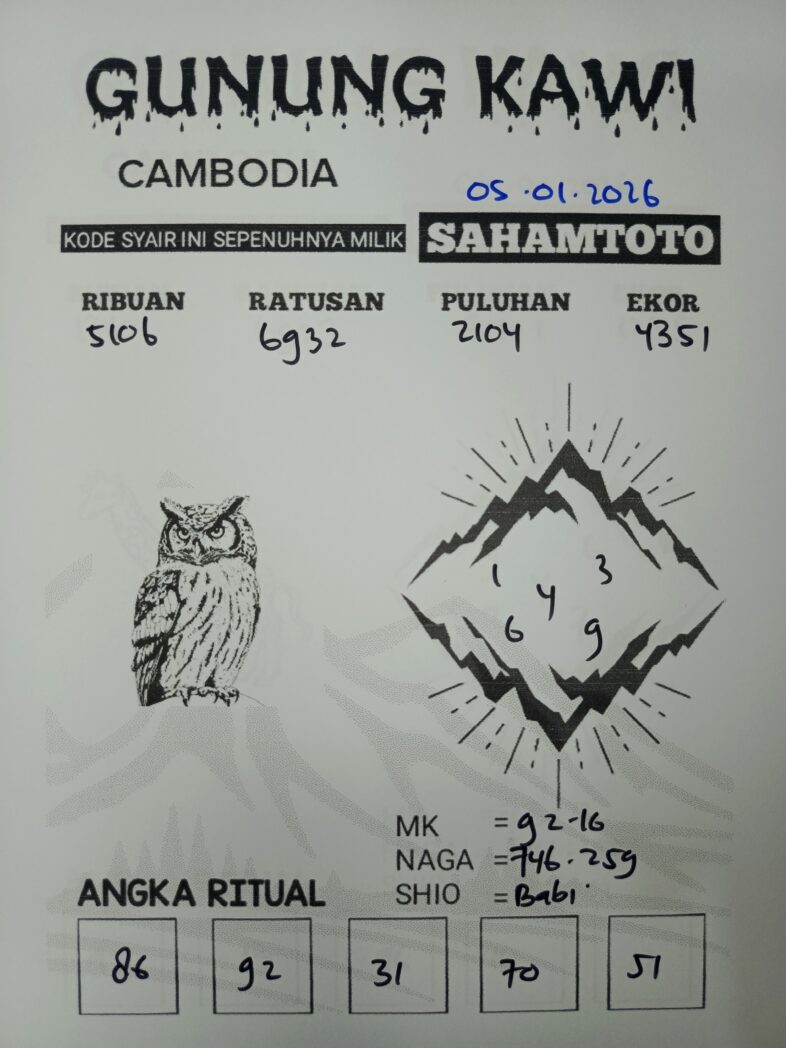 GUNUNG KAWI
CAMBODIA
05.01.2026
KODE SYAIR INI SEPENUHNYA MILIK SAHAMTOTO
RIBUAN RATUSAN PULUHAN EKOR
5106 6932 2104 4351
1 3
4
6 9
MK = 92-16
NAGA = 746.259
SHIO = Babi
ANGKA RITUAL
86 92 31 70 51